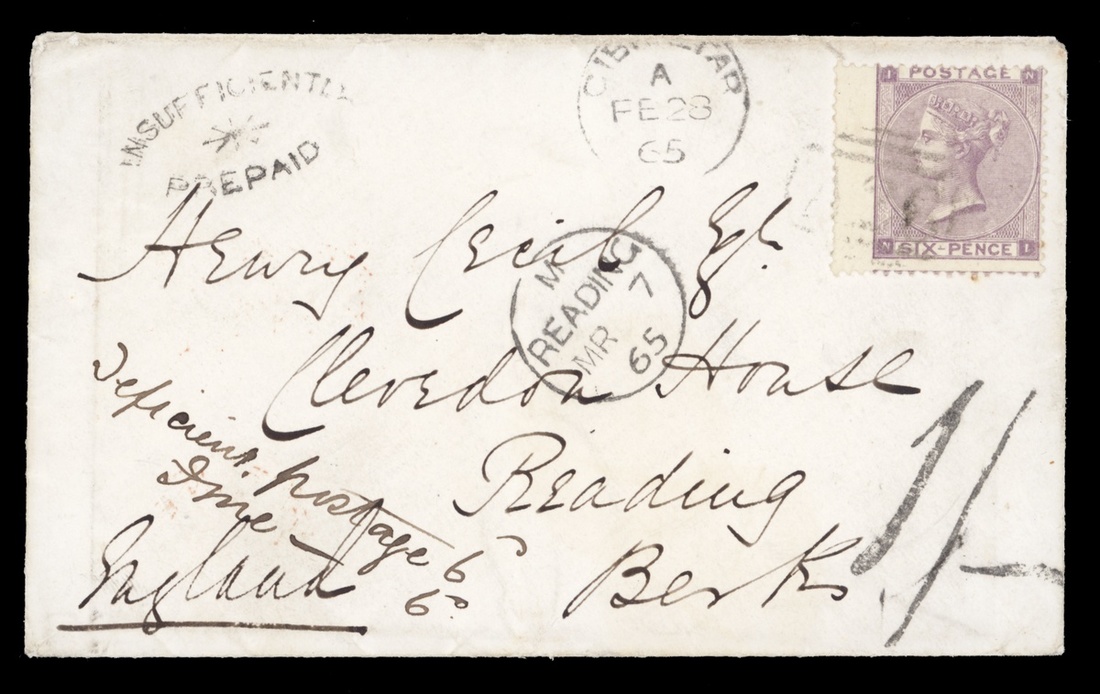 INSUFFICIENTLY
PREPAID
GIBRALTAR
A
FE 28
65
I POSTAGE N
N SIX-PENCE I
Henry Cecil Esqr
M
READING
7
MR
65
Clevedon House
Reading
Berks
England
Deficient postage 6d
Fine 6d
1/-